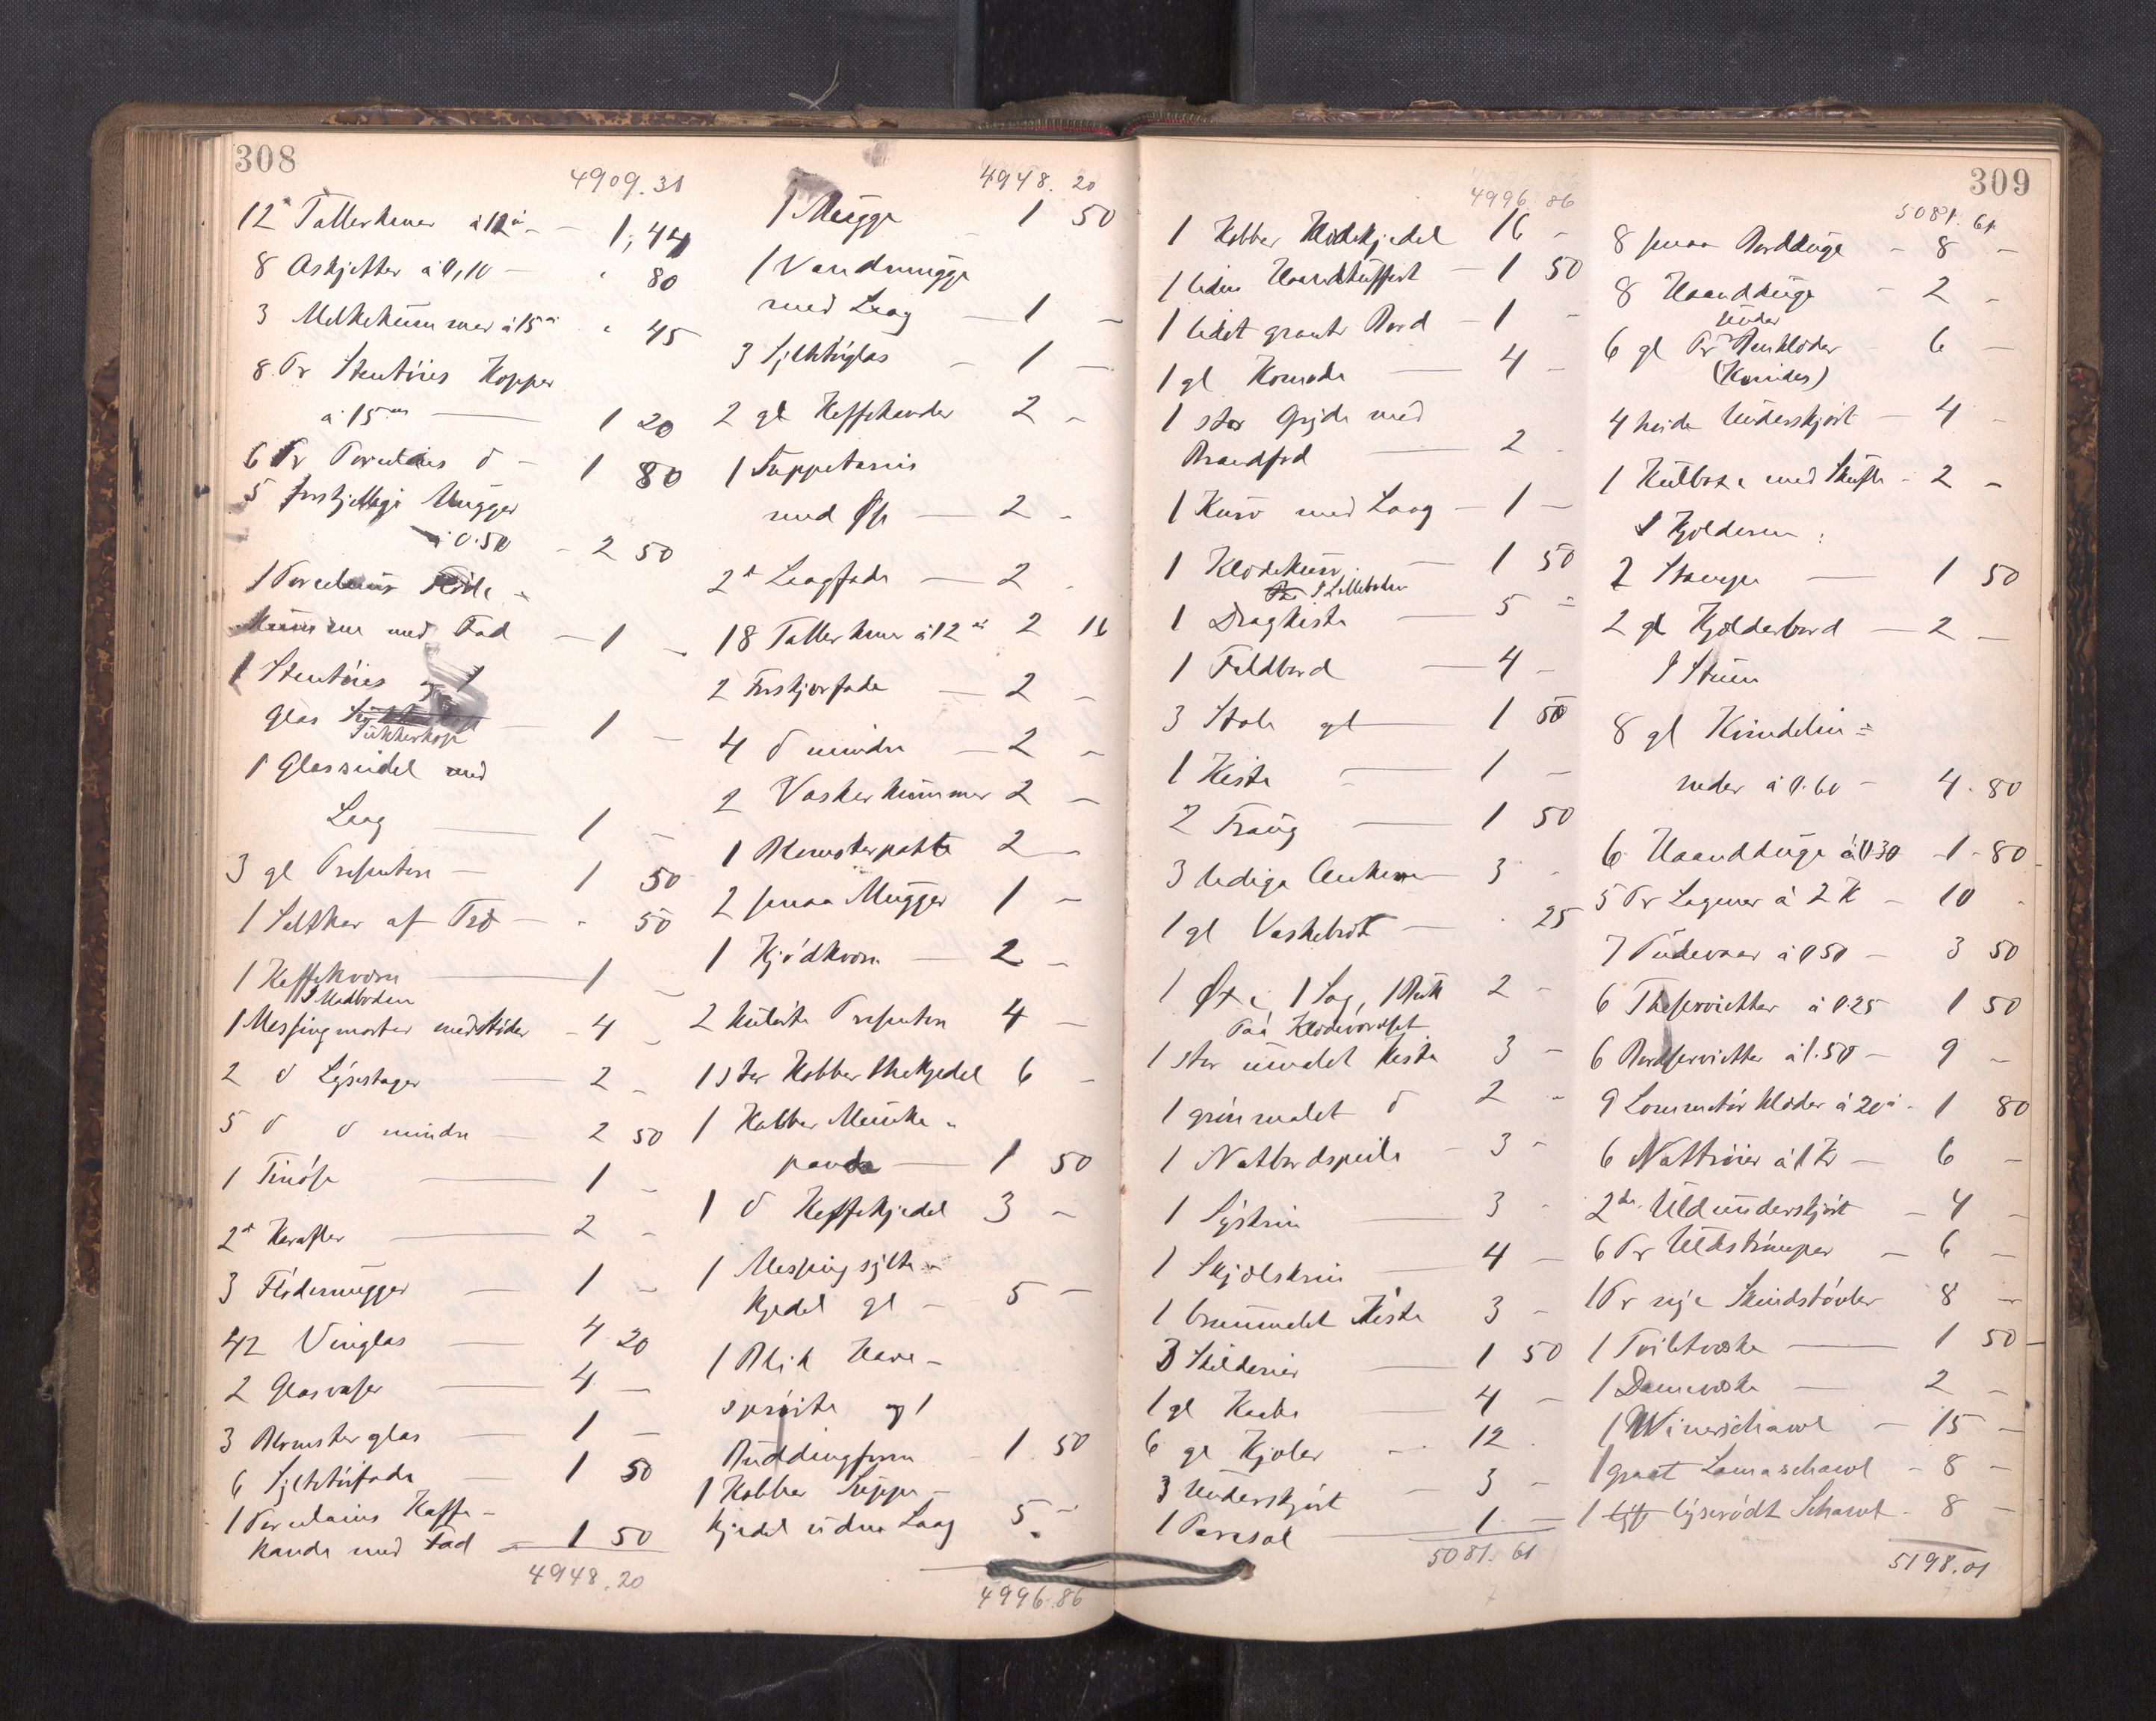 308
4909.31
12 Tallerkener à 12 ø - 1,44
8 Askjetter à 0,10 - " 80
3 Melkekummer à 15 ø " 45
8 Pr Stentøies Kopper
à 15 ø — 1 20
6 Pr Porcelains d - 1 80
5 forskjellige Mugger
à 0.50 - 2 50
1 Porcelains Fløde-
kumme med Fad — 1 -
1 Stentøies og 1
Glas
Sukkerkop — 1 -
1 Glasseidel med
Laag — 1 -
3 gl Presenten — 1 50
1 Saltkar af Træ — " 50
1 Kaffekværn — 1 -
I Madboden
1 Messingmorter med Støder - 4 -
2 d Lysestager — 2 -
5 d d mindre — 2 50
1 Tinøse — 1 -
2 Karafler — 2 -
3 Flødemugger — 1 -
42 Vinglas — 4 20
2 Glasvaser — 4 -
3 Blomsterglas — 1 -
6 Syltetøifade — 1 50
1 Porcelains Kaffe-
kande med Fad — 1 50
4948.20
4948.20
1 Mugge 1 50
1 Vandmugge
med Laag — 1 -
3 Syltetøiglas — 1 -
2 gl Kaffekander 2 -
1 Suppeterrin
med Øse — 2 -
2 Laagfade — 2 -
18 Tallerkener à 12 ø 2 16
2 Terskjorfade — 2 -
4 d mindre — 2 -
2 Vaskerkummer 2 -
1 Blomsterpotte 2 -
2 smaa Mugger 1 -
1 Kjødkværn — 2 -
2 hulede Presenten 4 -
1 stor Kobber Thekjedel 6 -
1 Kobber Munke-
pande — 1 50
1 d Kaffekjedel 3 -
1 Messing sylte-
kjedel gl - 5 -
1 Blik Have-
sprøite og 1
Buddingform - 1 50
1 Kobber Suppe-
kjedel uden Laag 5 -
4996.86
309
4996.86
1 Kobber Klædekjedel 16 -
1 liden Haandkuffert — 1 50
1 lidet graat Bord — 1 -
1 gl Komode — 4 -
1 stor Gryde med
Brandfod — 2 -
1 Kurv med Laag — 1 -
1 Klædekurv — 1 50
I Lilleboden
1 Dragkiste — 5 -
1 Foldbord — 4 -
3 Stole gl — 1 50
1 Kiste — 1 -
2 Traug — 1 50
3 ledige Ankere 3 -
1 gl Vaskebræt — " 25
1 Øxe, 1 Sag, 1 2 -
Paa Klædeværelset
1 stor umalet Kiste 3 -
1 grønmalet d 2 -
1 Natbordspeile - 3 -
1 Syskrin — 3 -
1 Skjølskrin — 4 -
1 brunmalet Kiste 3 -
3 Skilderier — 1 50
1 gl Kaabe — 4 -
6 gl Kjoler - 12 -
3 Underskjørt - 3 -
1 Parasol — 1 -
5081.61
5081.61
8 smaa Bordduge - 8 -
8 Haandduge - 2 -
Under
6 gl Pr Benklæder 6 -
(Kvindes)
4 hvide Underskjørt - 4 -
1 Kulboxe med Skuffe - 2 -
I Kjølderen:
2 Stampe — 1 50
2 gl Kjølderbord — 2 -
I Stuen
8 gl Kvindelin-
neder à 0.60 - 4.80
6 Haandduge à 0.30 - 1.80
5 Pr Lagener à 2 K - 10 -
7 Pudevaar à 0.50 - 3 50
6 Theservietter à 0.25 1 50
6 Bordservietter à 1.50 - 9 -
9 Lommetørklæder à 20 ø - 1 80
6 Nattrøier à 1 Kr - 6 -
2 Uldunderskjørt - 4 -
6 Pr Uldstrømper - 6 -
1 Pr nye Skindstøvler 8 -
1 Toiletvæske — 1 50
1 Damevæske — 2 -
1 Wienerschawl - 15 -
1 graat Lamaschawl - 8 -
1 lyserødt Schawl - 8 -
5198.01